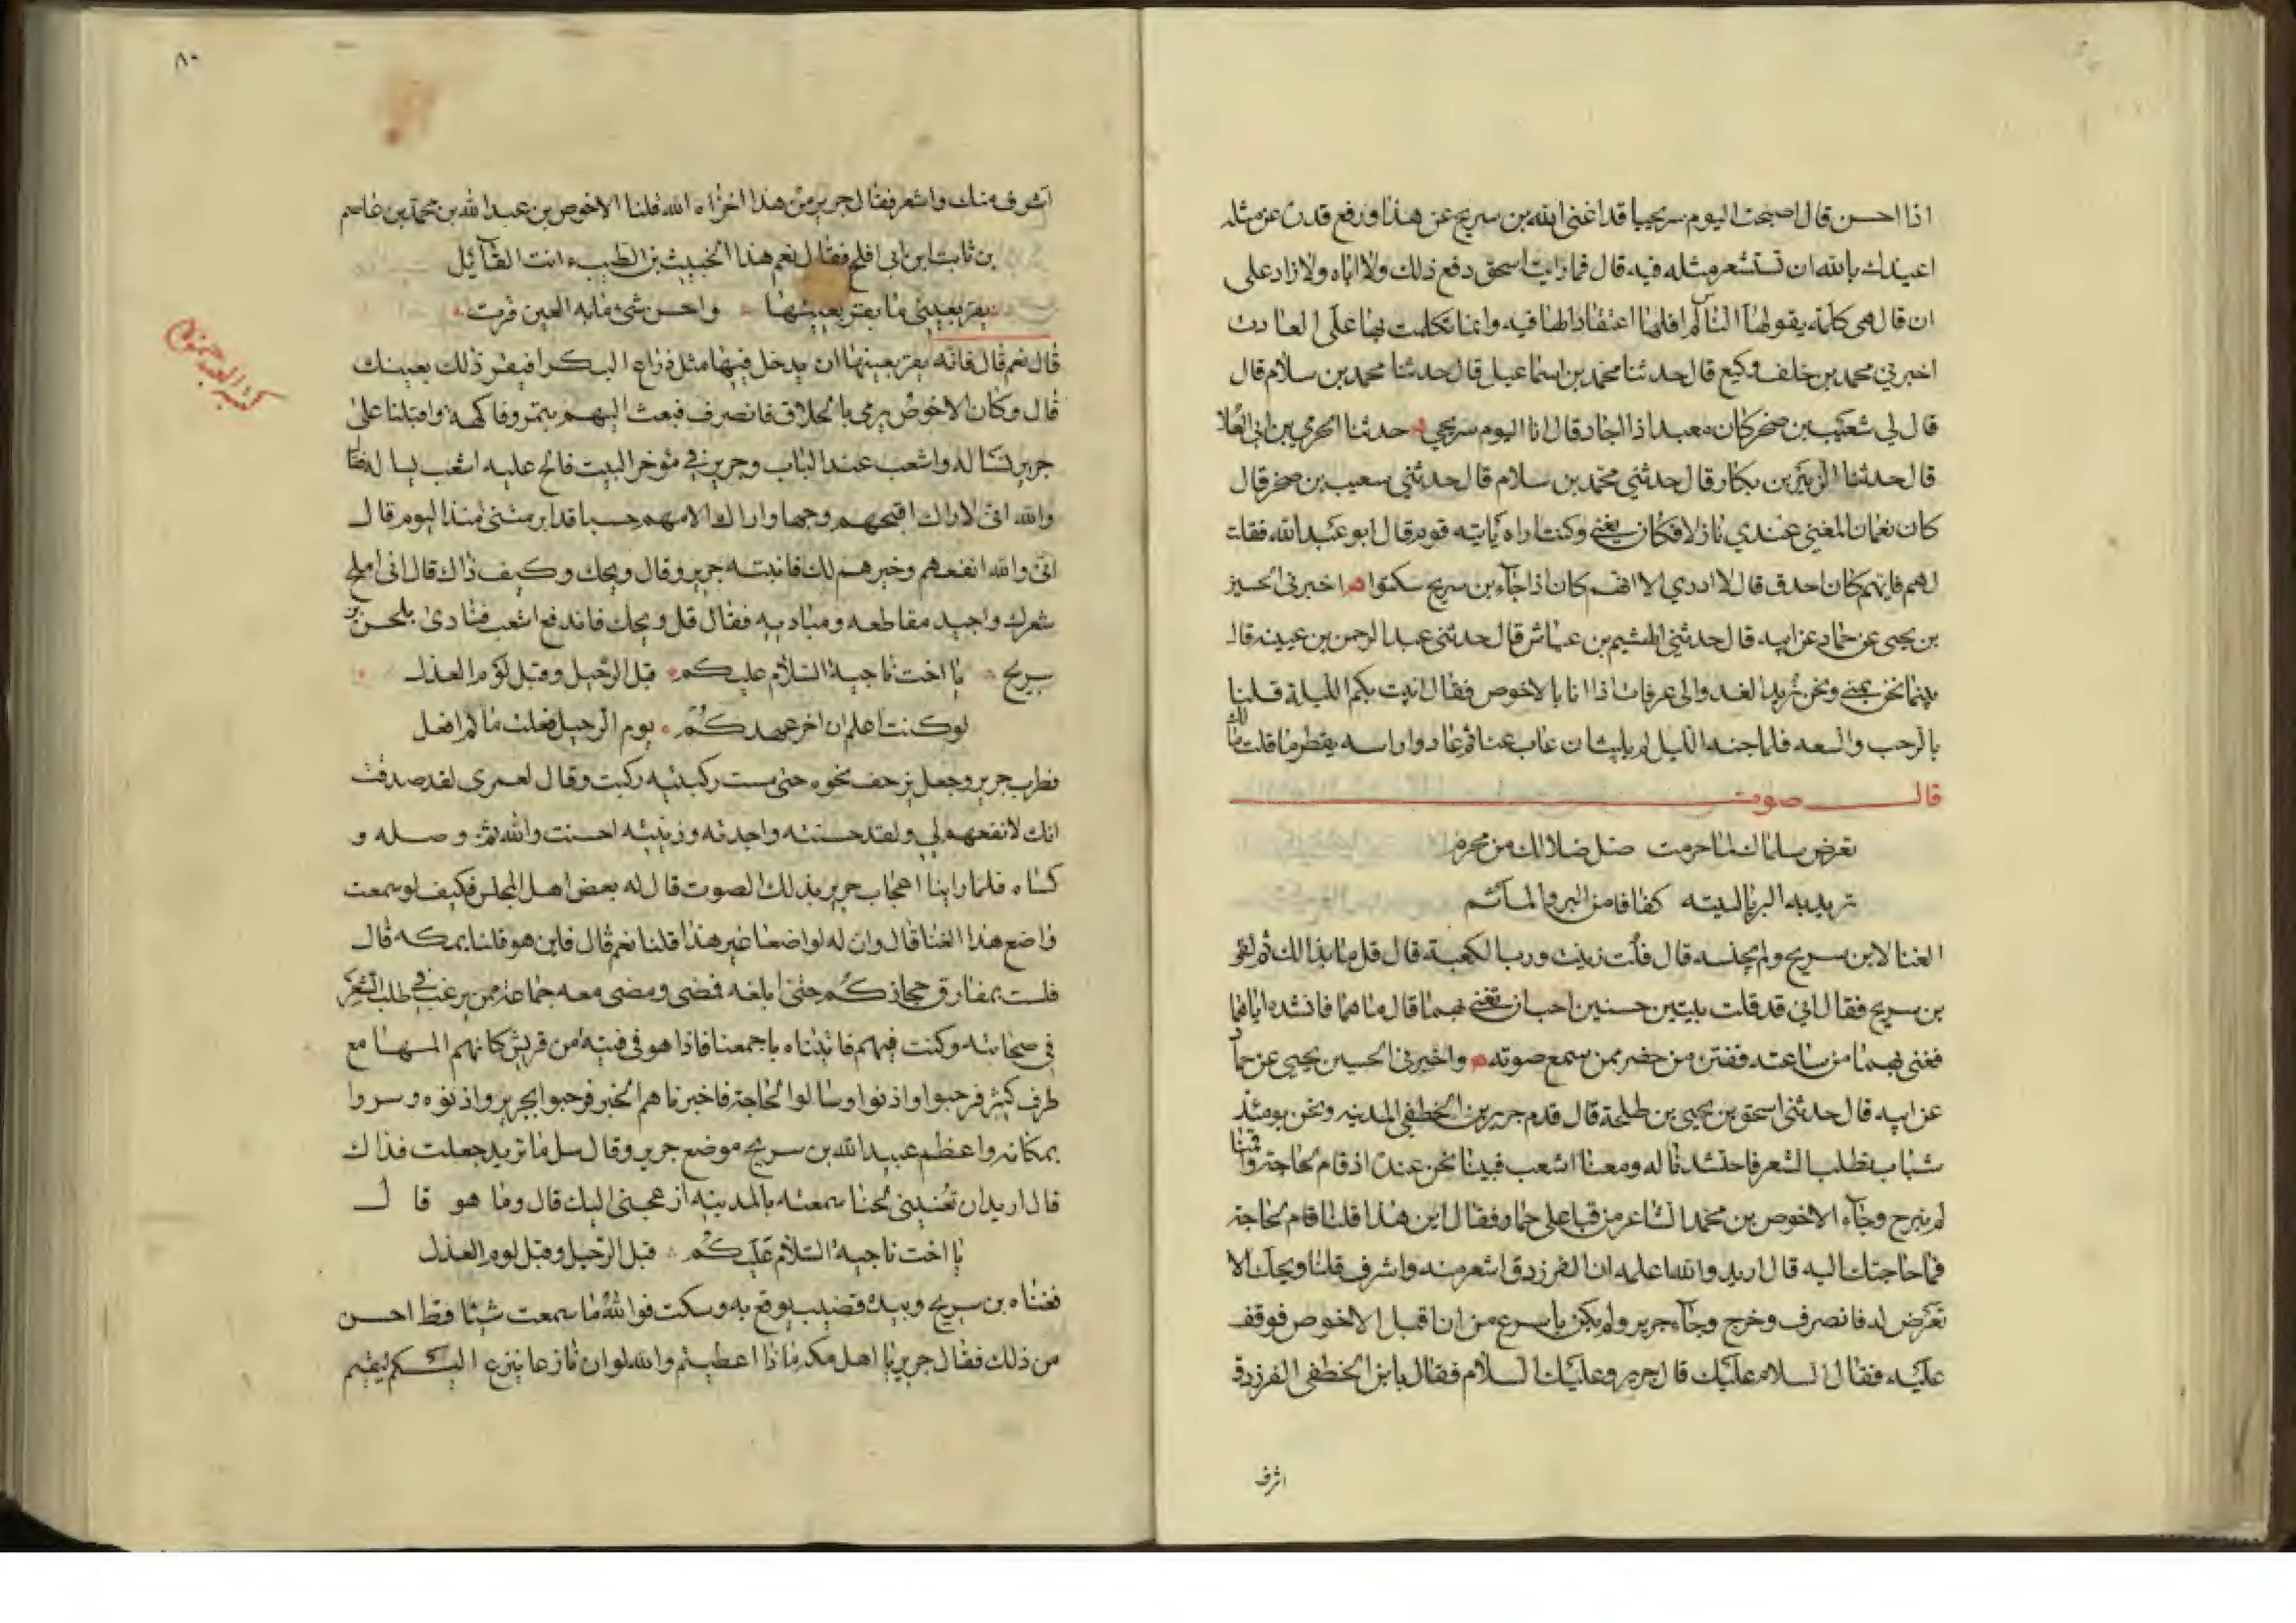 اذا احسن قال اصبحت اليوم سريجيا قد اغنى الله بن سريج عن هذا ورفع قدره عن مثله
اعيذك بالله ان تستشعر مثله فيه قال فما رايت اسحق دفع ذلك ولا اباه ولا زاد على
ان قال هي كلمة يقولها الناس لم اقلها اعتقادا لها فيه وانما تكلمت بها على العادت
اخبرني محمد بن خلف وكيع قال حدثنا محمد بن اسماعيل قال حدثنا محمد بن سلام قال
قال لي شعيب بن صخر كان معبد اذا اجاد قال انا اليوم سريجي حدثنا الحرمي بن ابي العلا
قال حدثنا الزبير بن بكار قال حدثني محمد بن سلام قال حدثني سعيب بن صخر قال
كان نعمان المغني عندي نازلا فكان يغني وكنت اراه ياتيه قوم قال ابو عبد الله فقلت
لهم فايهم كان احدق قال لا ادري الا انهم كان اذا جآء بن سريج سكتوا اخبرني الحسين
بن يحيى عن حماد عن ابيه قال حدثني الهيثم بن عياش قال حدثني عبد الرحمن بن عيينه قال
بينما نحن بمنى ونحن نريد الغد والى عرفات اذ انانا بالاخوص فقال ابيت بكم الليلة قلنا
بالرحب والسعه فلما جنه الليل لم يلبث ان غاب عنا ثم عاد وراسه يقطر ما قلت مالك
قال صوت
تعرض سلماك لما حرمت ضل ضلالك من محرم
تريد به البر يا ليته كفافا من البر والمآثم
الغنا لابن سريج ولم يجنسه قال قلت زنيت ورب الكعبة قال قل ما بدا لك ثم لقى
بن سريج فقال اني قد قلت بيتين حسنين احب ان تغني بهما قال ما هما فانشده اياهما
فغنى بهما من ساعته ففتن من حضر ممن سمع صوته واخبرني الحسين يحيى عن حماد
عن ابيه قال حدثني اسحق بن يحيى بن طلحة قال قدم جرير بن الخطفي المدينه ونحن يومئذ
شباب نطلب الشعر فاحتشدنا له ومعنا اشعب فبينا نحن عنده اذ قام لحاجة وقمنا
لم نبرح وجآء الاخوص بن محمد الشاعر من قبا على حمار فقال اين هذا قلنا قام لحاجة
فما حاجتك اليه قال اريد والله اعلمه ان الفرزدق اشعر منه واشرف قلنا ويحك لا
تعرض له فانصرف وخرج وجآء جرير ولم يكن باسرع من ان اقبل الاخوص فوقف
عليه فقال السلام عليك قال جرير وعليك السلام فقال يا بن الخطفي الفرزدق
اشرف
٨٠
اشرف منك واشعر فقال جرير من هذا اخزاه الله قلنا الاخوص بن عبد الله بن محمد بن عاصم
بن ثابت ابن ابي افلح فقال نعم هذا الخبيث بن الطيب ء انت القآئل
يقر بعيني ما يقر بعينها واحسن شئ ما به العين قرت
قال نعم قال فانه يقر بعينها ان يدخل فيها مثل ذراع البكر افيقر ذلك بعينك
قال وكان الاخوص يرمى بالحلاق فانصرف فبعث اليهم بتمر وفاكهة واقبلنا على
جرير نساله واشعب عند الباب وجرير في مؤخر البيت فالح عليه اشعب يساله فقال
والله انى لاراك اقبحهم وجها واراك الامهم حسبا قد ابرمتنى منذ اليوم قال
انى والله انفعهم وخيرهم لك فانتبه جرير وقال ويحك وكيف ذاك قال انى املح
شعرك واجيد مقاطعه ومباديه فقال قل ويحك فاندفع اشعب فنادى بلحن بن
سريج يا اخت ناجية السلام عليكم قبل الرحيل وقبل لؤم العذل
لو كنت اعلم ان اخر عهدكم يوم الرحيل فعلت ما لم افعل
فطرب جرير وجعل يزحف نحوه حتى مست ركبتيه ركبت وقال لعمرى لقد صدقت
انك لانفعهم لي ولقد حسنته واجدته وزينته احسنت والله ثم وصله و
كساه فلما راينا اعجاب جرير بذلك الصوت قال له بعض اهل المجلس فكيف لو سمعت
واضع هذا الغنا قال وان له لواضعا غير هذا قلنا نعم قال فاين هو قلنا بمكه قال
فلست بمفارق حجازكم حتى ابلغه فمضى ومضى معه جماعة ممن يرغب في طلب الشعر
في صحابته وكنت فيهم فاتيناه باجمعنا فاذا هو في فتية من قريش كانهم المها مع
ظرف كثير فرحبوا واذنوا وسالوا الحاجة فاخبرناهم الخبر فرحبوا بجرير واذنوه وسروا
بمكانه واعظم عبيد الله بن سريج موضع جرير وقال سل ما تريد جعلت فداك
قال اريد ان تغنيني لحنا سمعته بالمدينه ازعجنى اليك قال وما هو قال
يا اخت ناجية السلام عليكم قبل الرحيل وقبل لوم العذل
فغناه بن سريج وبيده قضيب يوقع به وسكت فوالله ما سمعت شيئا قط احسن
من ذلك فقال جرير يا اهل مكه ماذا اعطيتم والله لو ان نازعا ينزع اليكم ليقيم